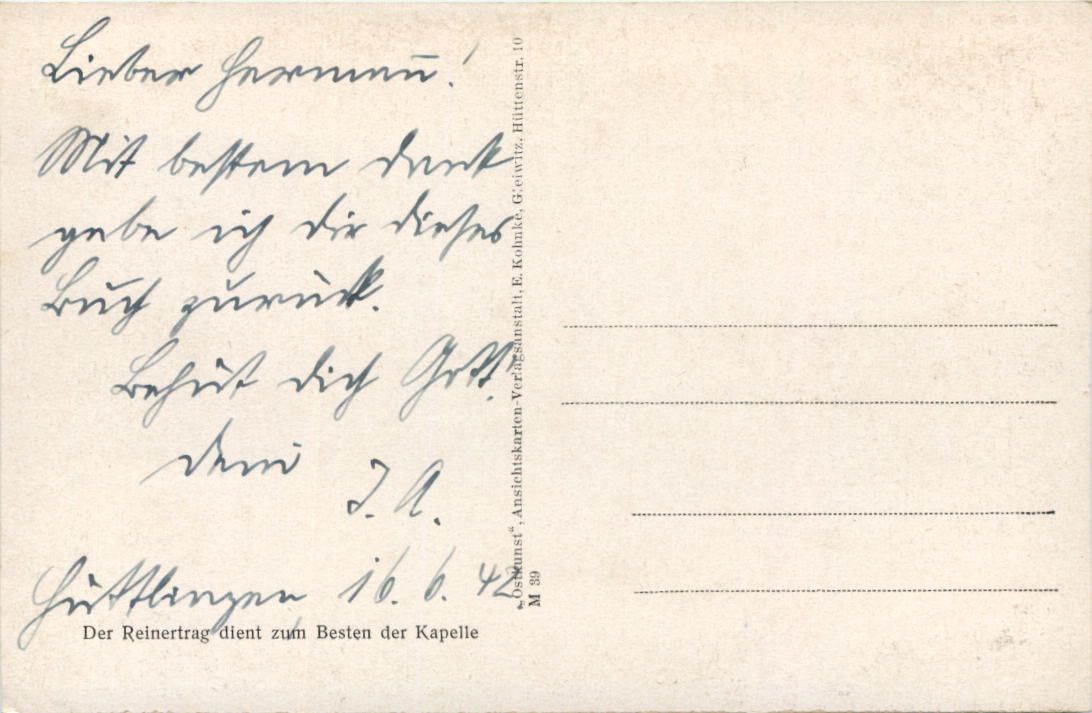 Lieber Hermann!
Mit bestem Dank
gebe ich dir dieses
Buch zurück.
Behüt dich Gott.
dein
J. A.
Hüttlingen 16. 6. 42.
Der Reinertrag dient zum Besten der Kapelle
„Ostkunst“, Ansichtskarten-Verlagsanstalt, E. Kohnke, Gleiwitz, Hüttenstr. 10
M 39